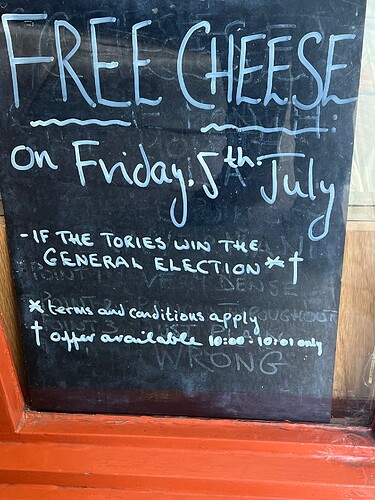 FREE CHEESE
on Friday. 5th July
- IF THE TORIES WIN THE
GENERAL ELECTION * †
DENSE
* terms and conditions apply
† offer available 10:00 : 10:01 only
WRONG